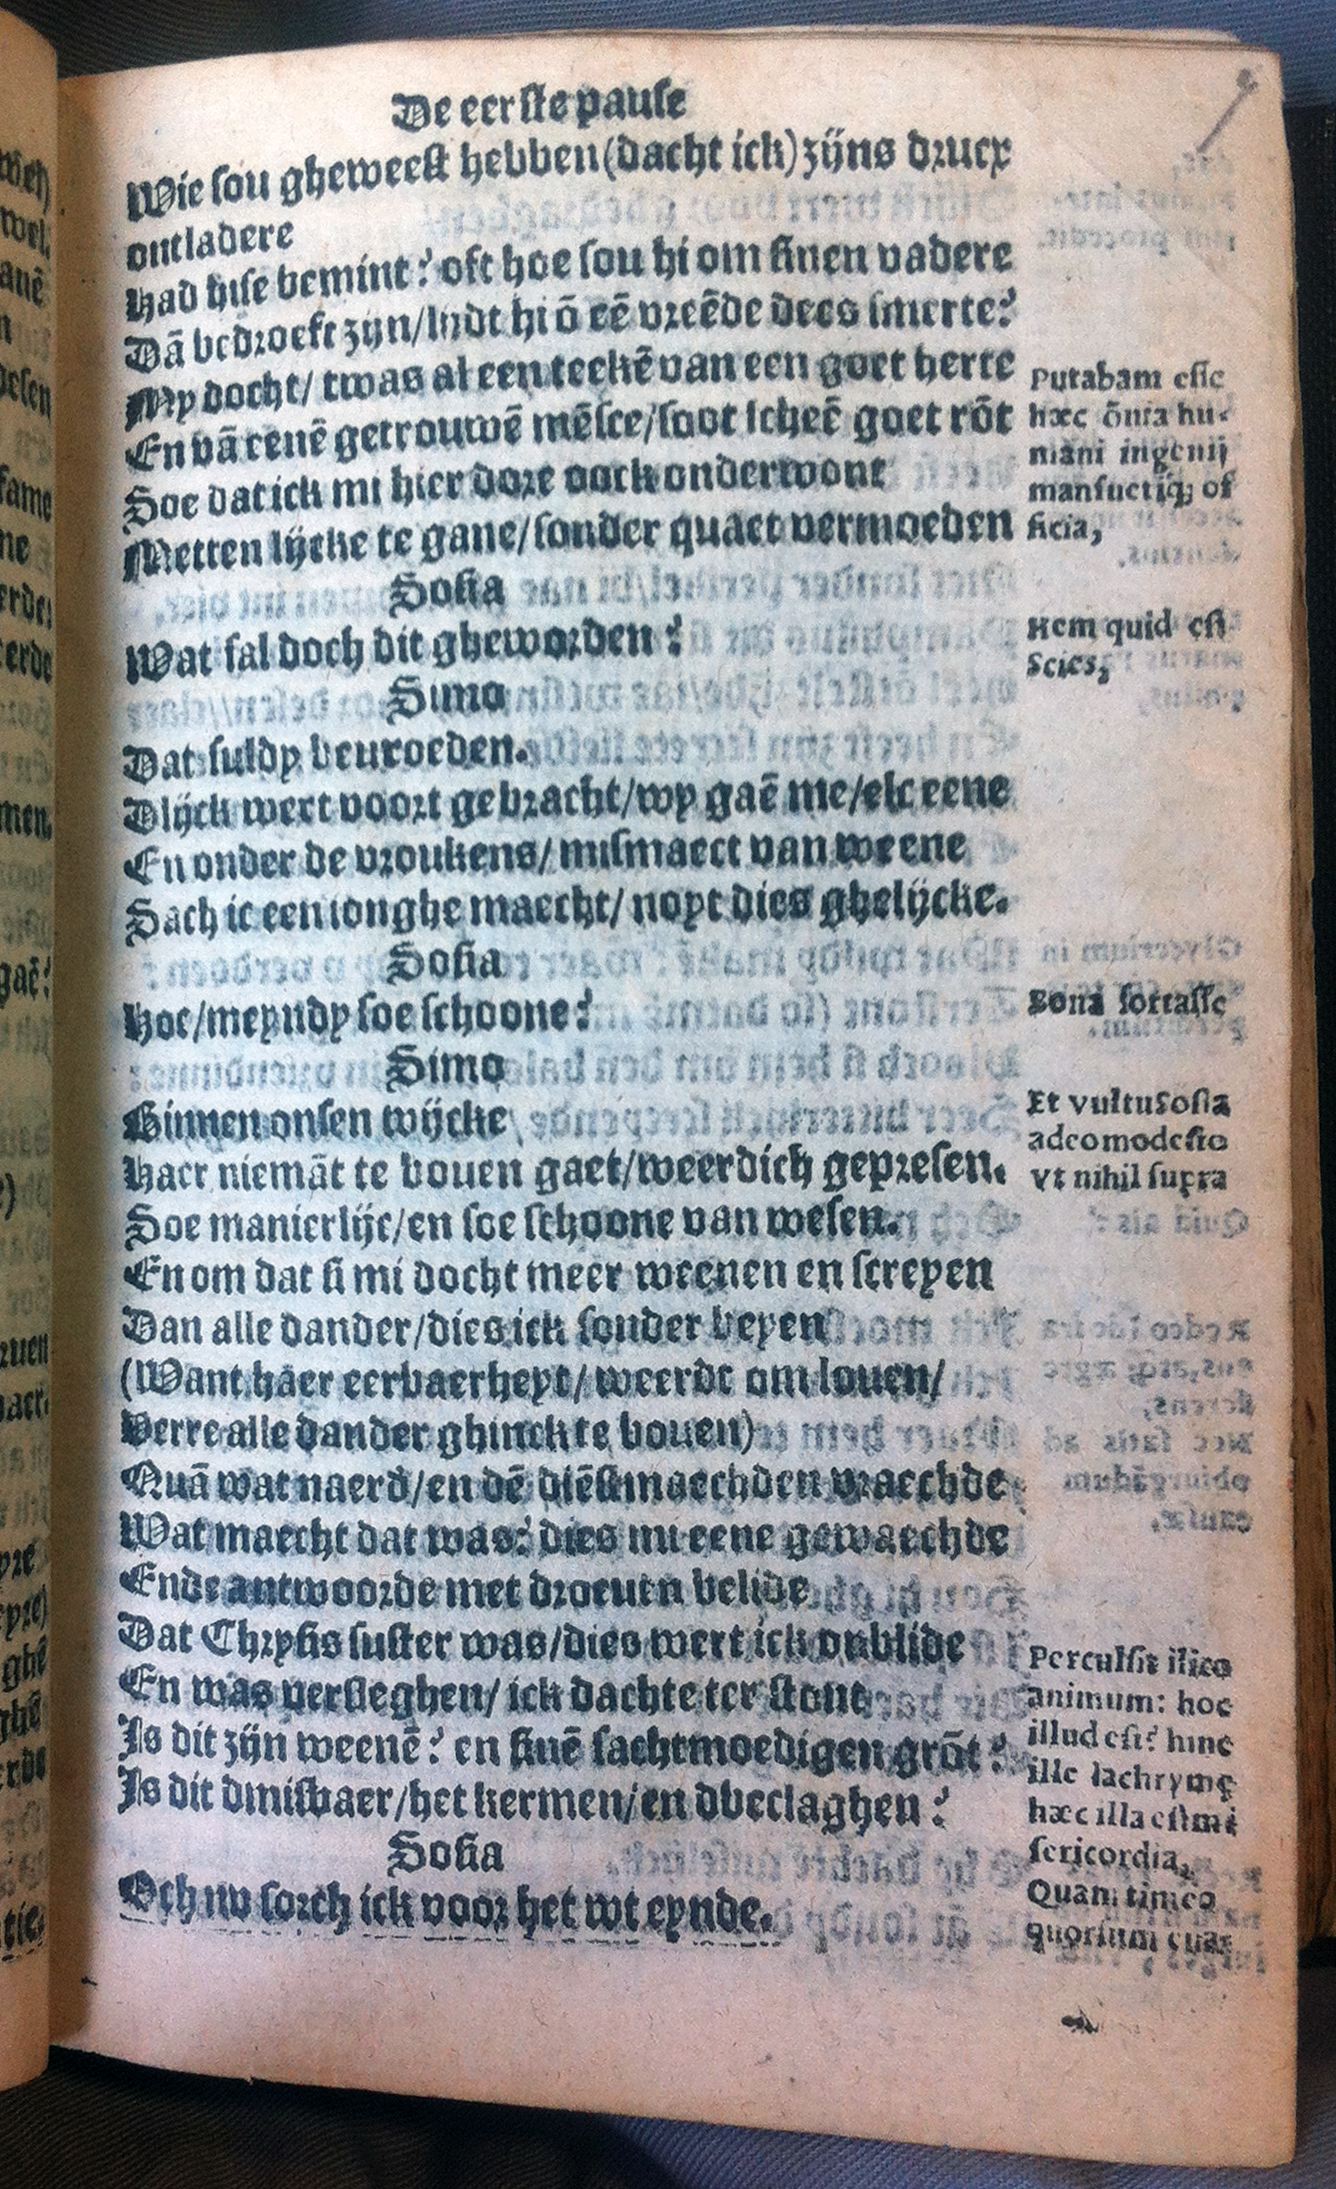 De eerste pause
Wie sou gheweest hebben (dacht ick) zijns drucx
ontladere
Had hise bemint? oft hoe sou hi om sinen vadere
Dā bedroeft zijn/ lijdt hi ō eē vreēde dees smerte?
My docht/ twas al een teekē van een goet herte
En vā eenē getrouwē mēsce/ soot scheē goet rōt
Soe dat ick mi hier dore oock onderwont
Metten lijcke te gane/ sonder quaet vermoeden
Sosia
Wat sal doch dit gheworden?
Simo
Dat suldy bevroeden.
Dlijck wert voort gebracht/ wy gaē me/ elc eene
En onder de vroukens/ mismaect van weene
Sach ic een ionghe maecht/ noyt dies ghelijcke.
Sosia
Hoe/ meyndy soe schoone?
Simo
Binnen onsen wijcke
Haer niemāt te bouen gaet/ weerdich gepresen.
Soe manierlijc/ en soe schoone van wesen.
En om dat si mi docht meer weenen en screyen
Dan alle dander/ dies ick sonder beyen
(Want haer eerbaerheyt/ weerdt om louen/
Verre alle dander ghinck te bouen)
Quā wat naerd/ en dē diēstmaechden vraechde
Wat maecht dat was? dies mi eene gewaechde
Ende antwoorde met droeuen belide
Dat Chrysis suster was/ dies wert ick onblide
En was versleghen/ ick dachte ter stont
Is dit zijn weenē? en sinē sachtmoedigen grōt?
Is dit dmisbaer/ het kermen/ en dbeclaghen?
Sosia
Och nv sorch ick voor het wt eynde.
Putabam esse
hæc ōnia hu-
mani ingenij
mansuetiq; of
ficia,
Hem quid est
Scies,
Bona fortasse
Et vultu Sosia
adeo modesto
vt nihil supra
Perculsit ilico
animum: hoc
illud est? hinc
ille lachrymę
hæc illa est mi
sericordia,
Quam timeo
quorsum euas